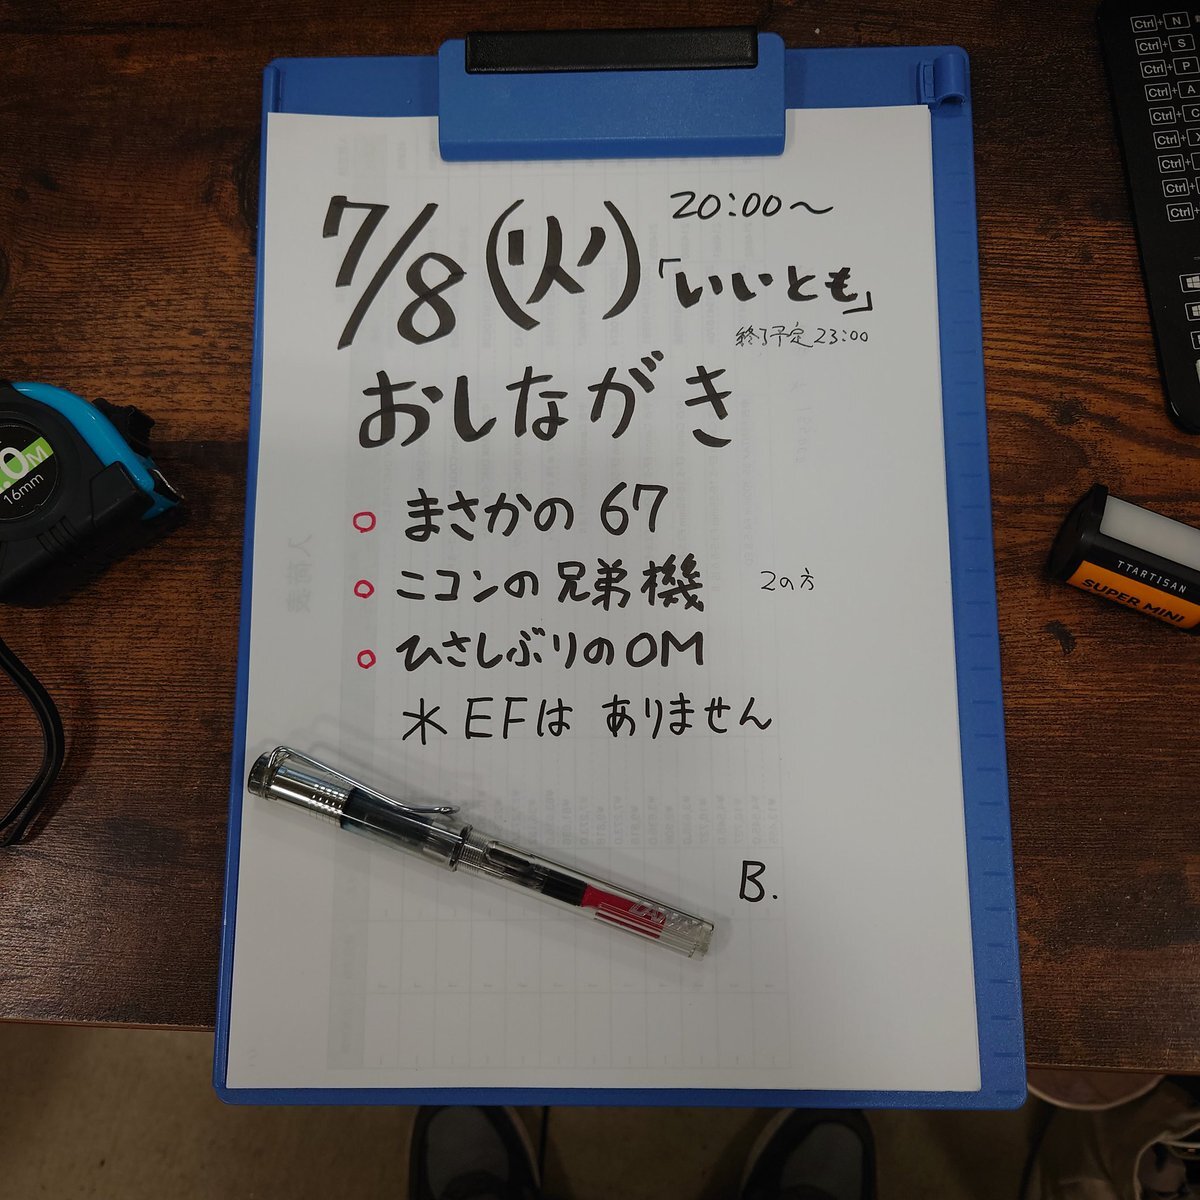 7/8(火)
20:00〜
「いいとも」
終了予定23:00
おしながき
まさかの 67
ニコンの兄弟機 2の方
ひさしぶりのOM
※ EFは ありません
B.
LAMY
.0M
16mm
TTARTISAN
SUPER MINI
Ctrl+N
Ctrl+S
Ctrl+P
Ctrl+A
Ctrl+C
Ctrl+X
Ctrl+
Ctrl+
Ctrl+